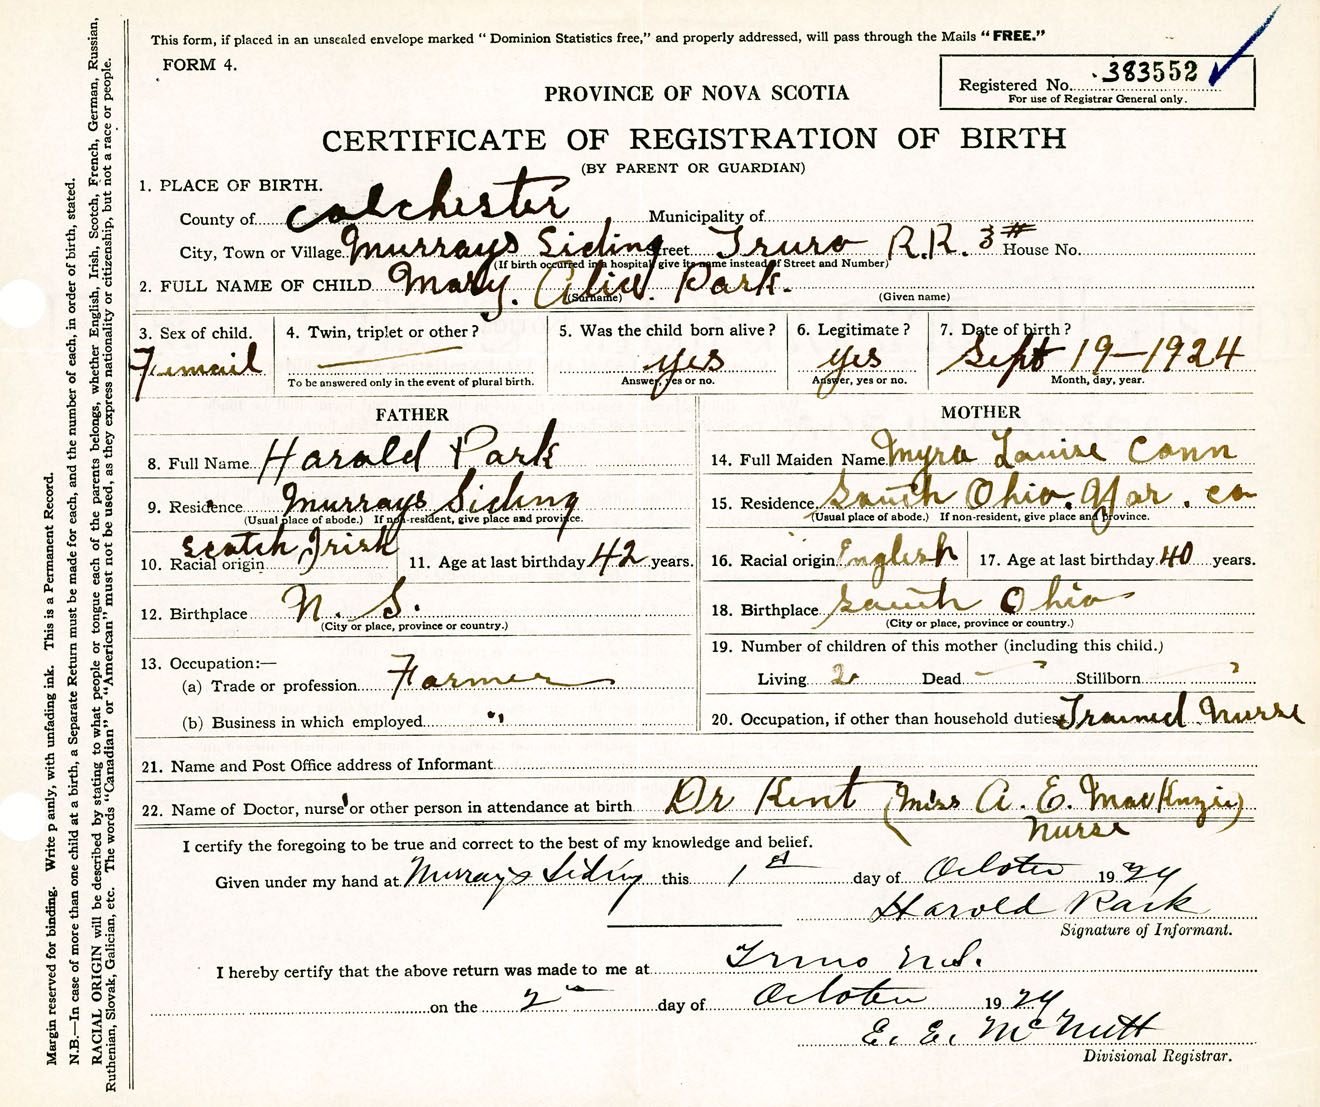 This form, if placed in an unsealed envelope marked “ Dominion Statistics free,” and properly addressed, will pass through the Mails “ FREE.”
FORM 4.
Registered No. 383552
For use of Registrar General only.
PROVINCE OF NOVA SCOTIA
CERTIFICATE OF REGISTRATION OF BIRTH
(BY PARENT OR GUARDIAN)
1. PLACE OF BIRTH.
County of Colchester Municipality of
City, Town or Village Murrays Siding Street Truro R.R. 3 # House No.
(If birth occurred in a hospital give its name instead of Street and Number)
2. FULL NAME OF CHILD Mary. Alice. Park.
(Surname) (Given name)
3. Sex of child. 4. Twin, triplet or other ? 5. Was the child born alive ? 6. Legitimate ? 7. Date of birth ?
Femail — yes yes Sept 19-1924
To be answered only in the event of plural birth. Answer, yes or no. Answer, yes or no. Month, day, year.
FATHER
8. Full Name Harold Park
9. Residence Murrays Siding
(Usual place of abode.) If non-resident, give place and province.
10. Racial origin Scotch Irish 11. Age at last birthday 42 years.
12. Birthplace N. S.
(City or place, province or country.)
13. Occupation:—
(a) Trade or profession Farmer
(b) Business in which employed "
MOTHER
14. Full Maiden Name Myra Louise Conn
15. Residence South Ohio. Yar. Co
(Usual place of abode.) If non-resident, give place and province.
16. Racial origin English 17. Age at last birthday 40 years.
18. Birthplace South Ohio
(City or place, province or country.)
19. Number of children of this mother (including this child.)
Living 2 Dead — Stillborn
20. Occupation, if other than household duties Trained Nurse
21. Name and Post Office address of Informant
22. Name of Doctor, nurse or other person in attendance at birth Dr Kent (Miss A. E. MacKenzie)
Nurse
I certify the foregoing to be true and correct to the best of my knowledge and belief.
Given under my hand at Murrays Siding this 1st day of October 1924
Harold Park
Signature of Informant.
I hereby certify that the above return was made to me at Truro N.S.
on the 2nd day of October 1924
E. E. McNutt
Divisional Registrar.
Margin reserved for binding. Write p anly, with unfading ink. This is a Permanent Record.
N.B.—In case of more than one child at a birth, a Separate Return must be made for each, and the number of each, in order of birth, stated.
RACIAL ORIGIN will be described by stating to what people or tongue each of the parents belongs, whether English, Irish, Scotch, French, German, Russian,
Ruthenian, Slovak, Galician, etc. The words “Canadian” or “American” must not be used, as they express nationality or citizenship, but not a race or people.